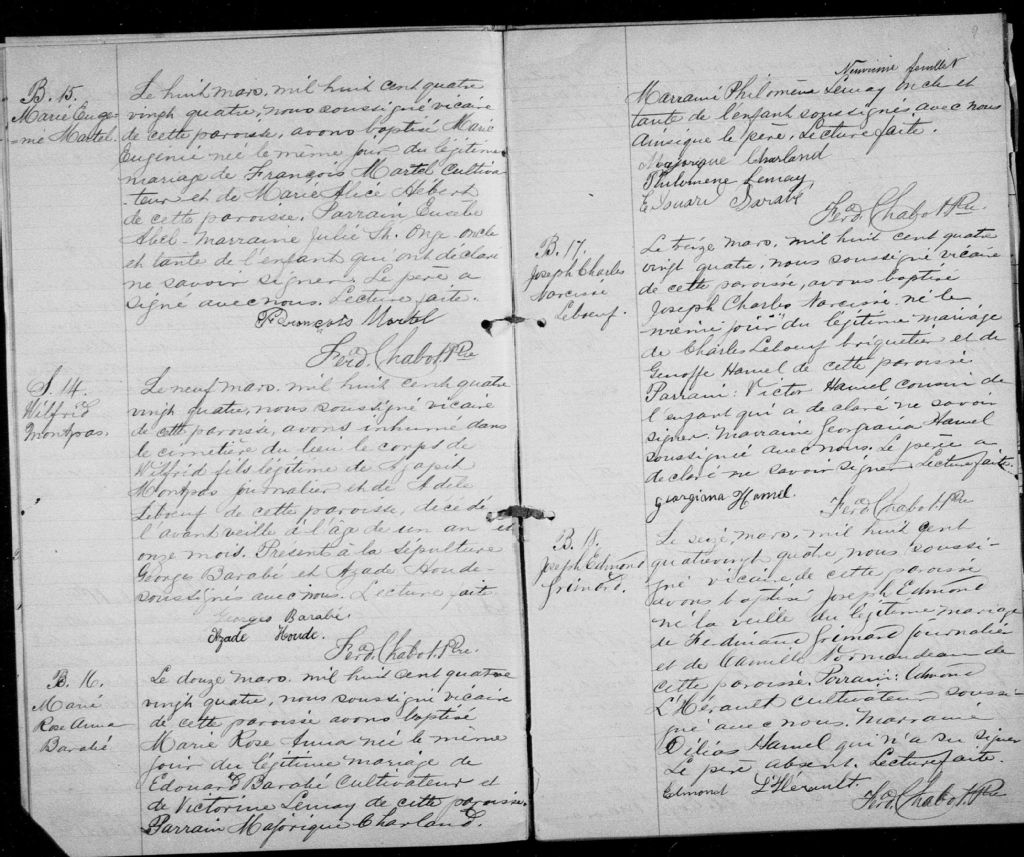 B. 15.
Marie Euge-
=nie Martel.
Le huit mars, mil huit cent quatre
vingt quatre, nous soussigné vicaire
de cette paroisse, avons baptisé Marie
Eugénie née le même jour du légitime
mariage de François Martel Cultiva
-teur et de Marie Alice Hébert
de cette paroisse. Parrain Eusèbe
Abel - Marraine Julie St. Onge oncle
et tante de l'enfant qui ont déclaré
ne savoir signer. Le père a
signé avec nous. Lecture faite.
François Martel
Ferd. Chabot Ptre
S. 14.
Wilfrid
Montpas.
Le neuf mars, mil huit cent quatre
vingt quatre, nous soussigné vicaire
de cette paroisse, avons inhumé dans
le cimetière du lieu le corps de
Wilfrid fils légitime de Agapit
Montpas journalier et de Adèle
Leboeuf de cette paroisse, décédé
l'avant veille à l'âge de un an et
onze mois. Présent à la sépulture
Georges Barabé et Azade Houde
soussignés avec nous. Lecture faite
Georges Barabé
Azade Houde.
Ferd. Chabot. Ptre.
B. 16.
Marie
Rose Anna
Barabé
Le douze mars, mil huit cent quatre
vingt quatre, nous soussigné vicaire
de cette paroisse avons baptisé
Marie Rose Anna née le même
jour du légitime mariage de
Édouard Barabé Cultivateur et
de Victorine Lemay de cette paroisse.
Parrain Majorique Charland.
9
Neuvième feuillet
Marraine Philomène Lemay oncle et
tante de l'enfant soussignés, avec nous
Ainsique le père. Lecture faite.
Majorique Charland
Philomene Lemay
Edouard Barabé
Ferd. Chabot Ptre.
B. 17.
Joseph Charles
Narcisse
Leboeuf.
Le treize mars, mil huit cent quatre
vingt quatre, nous soussigné vicaire
de cette paroisse, avons baptisé
Joseph Charles Narcisse, né le
même jour du légitime mariage
de Charles Leboeuf briquetier et de
Genoffe Hamel de cette paroisse
Parrain: Victor Hamel cousin de
l'enfant qui a declaré ne savoir
signer. Marraine Georgiana Hamel
soussignié avec nous. Le père a
declaré ne savoir signer Lecture faite.
Georgiana Hamel.
Ferd. Chabot Ptre
B. 18.
Joseph Edmond
Grimard.
Le seize mars, mil huit cent
quatrevingt quatre, nous soussi-
gné vicaire de cette paroisse
avons baptisé Joseph Edmond
né la veille du légitime mariage
de Ferdinand Grimard journalié
et de Camille Normandeau de
cette paroisse. Parrain: Edmond
L'Hérault cultivateur soussi-
gné avec nous. Marraine
Délias Hamel qui n'a su signer
Le père absent. Lecture faite.
Edmond L'Hérault.
Ferd. Chabot. Ptre